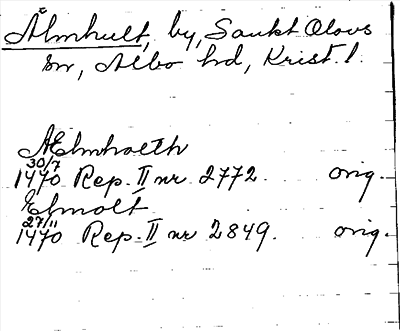 Älmhult, by, Sankt Olovs
sn, Albo hd, Krist. l.
AElmholth
30/7
1470 Rep. II nr 2772. orig.
Elmolt
27/11
1470 Rep. II nr 2849. orig.